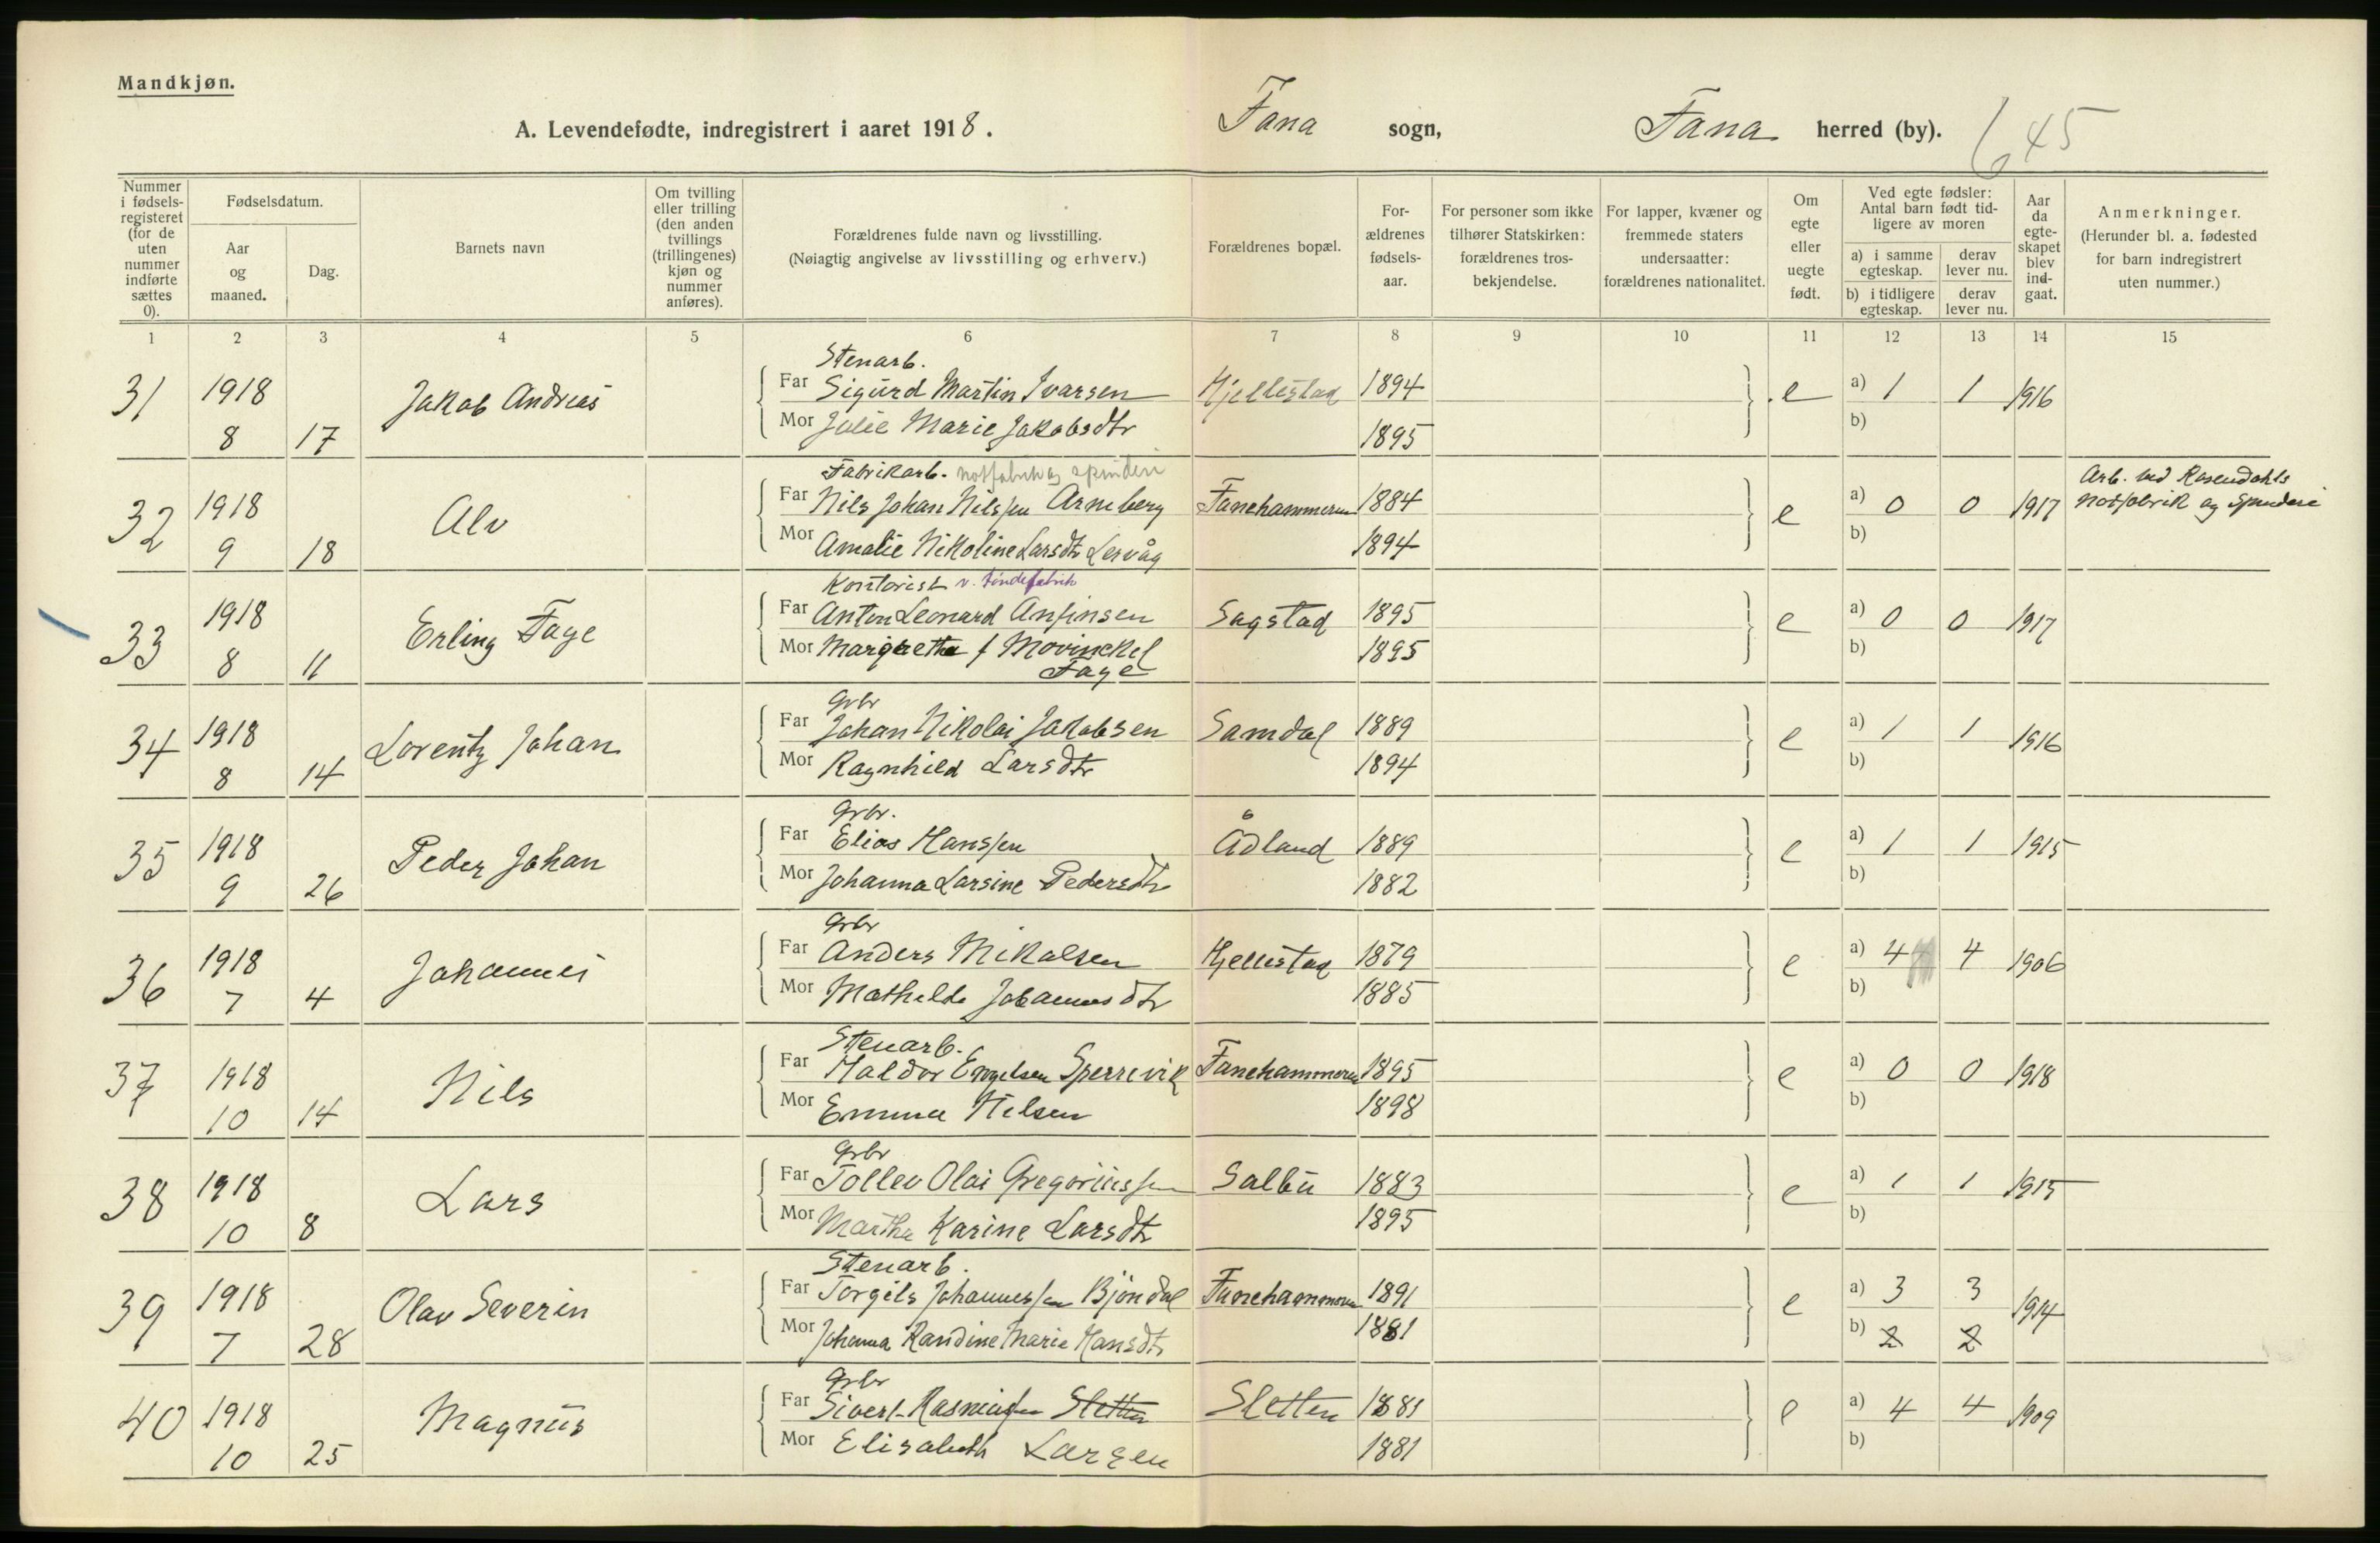 Mandkjøn.
A. Levendefødte, indregistrert i aaret 1918. Fana sogn, Fana herred (by). 645
Nummer i fødsels-registeret (for de uten nummer indførte sættes 0).
Fødselsdatum.
Aar og maaned.
Dag.
Barnets navn
Om tvilling eller trilling (den anden tvillings (trillingenes) kjøn og nummer anføres).
Forældrenes fulde navn og livsstilling.
(Nøiagtig angivelse av livsstilling og erhverv.)
Forældrenes bopæl.
For-ældrenes fødsels-aar.
For personer som ikke tilhører Statskirken: forældrenes tros-bekjendelse.
For lapper, kvæner og fremmede staters undersaatter: forældrenes nationalitet.
Om egte eller uegte født.
Ved egte fødsler: Antal barn født tid-ligere av moren
a) i samme egteskap. derav lever nu.
b) i tidligere egteskap. derav lever nu.
Aar da egte-skapet blev ind-gaat.
Anmerkninger.
(Herunder bl. a. fødested for barn indregistrert uten nummer.)
1 2 3 4 5 6 7 8 9 10 11 12 13 14 15
Stenarb.
31 1918 Jakob Andreas Far Sigurd Martin Ivarsen Hjellestad 1894 e a) 1 1 1916
8 17 Mor Julie Marie Jakobsdtr 1895 b)
Fabrikarb. notfabrik og spinderi
32 1918 Alv Far Nils Johan Nilssen Arneberg Fanehammeren 1884 e a) 0 0 1917 Arb. ved Rosendahls Notfabrik og Spinderi
9 18 Mor Amalie Nikoline Larsdtr Lervåg 1894 b)
Kontorist v. tøndefabrik
33 1918 Erling Faye Far Anton Leonard Anfinsen Sagstad 1895 e a) 0 0 1917
8 11 Mor Margrethe f Movinckel Faye 1895 b)
Grbr
34 1918 Lorentz Johan Far Johan Nikolai Jakobsen Samdal 1889 e a) 1 1 1916
8 14 Mor Ragnhild Larsdtr 1894 b)
Grbr.
35 1918 Peder Johan Far Elias Hanssen Ådland 1889 e a) 1 1 1915
9 26 Mor Johanna Larsine Pedersdtr 1882 b)
Grbr
36 1918 Johannes Far Anders Mikalsen Hjellestad 1879 e a) 4 4 1906
7 4 Mor Mathilde Johannesdtr 1885 b)
Stenarb.
37 1918 Nils Far Haldor Engelsen Sperrevik Fanehammeren 1895 e a) 0 0 1918
10 14 Mor Emma Nilsen 1898 b)
Grbr
38 1918 Lars Far Tollev Olai Gregoriussen Salbu 1883 e a) 1 1 1915
10 8 Mor Martha Karine Larsdtr 1895 b)
Stenarb.
39 1918 Olav Severin Far Torgils Johannessen Bjöndal Fanehammeren 1891 e a) 3 3 1914
7 28 Mor Johanna Randine Marie Hansdtr 1881 b) 2 2
Grbr
40 1918 Magnus Far Sivert Rasmussen Sletten Sletten 1881 e a) 4 4 1909
10 25 Mor Elisabeth Larsen 1881 b)